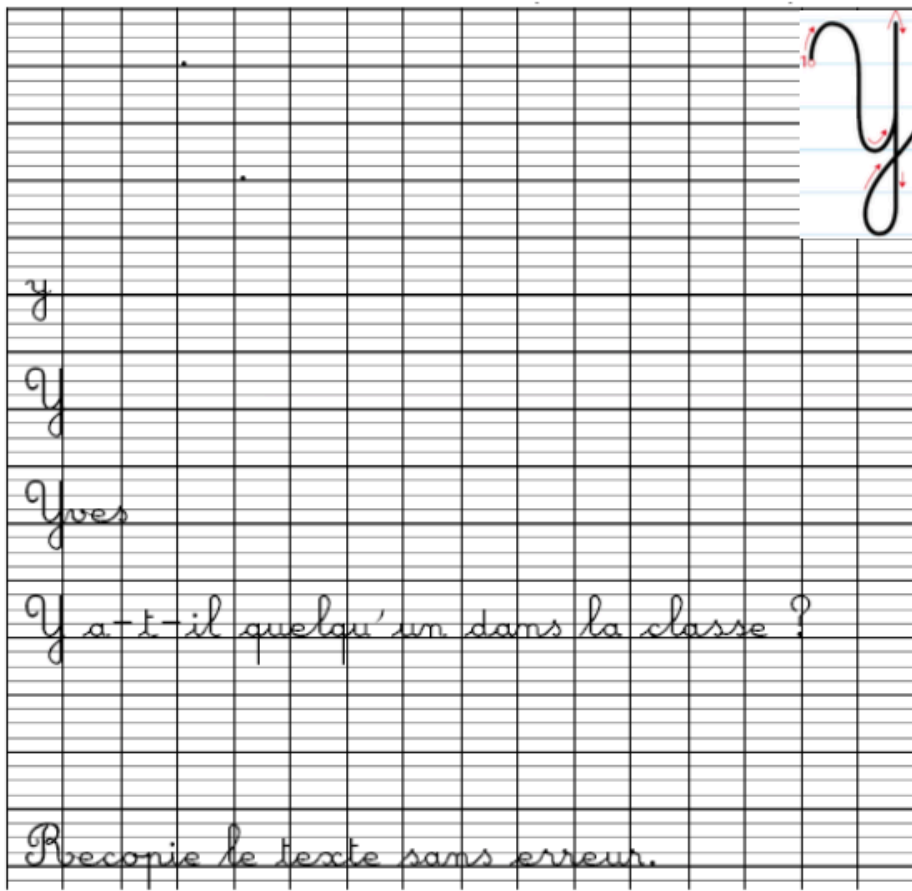 Y
y
Y
Yves
Y a-t-il quelqu'un dans la classe ?
Recopie le texte sans erreur.